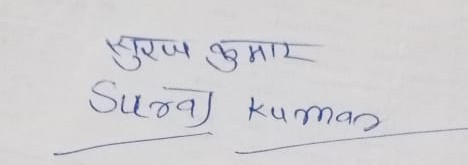 सुरज कुमार
Suraj kumar